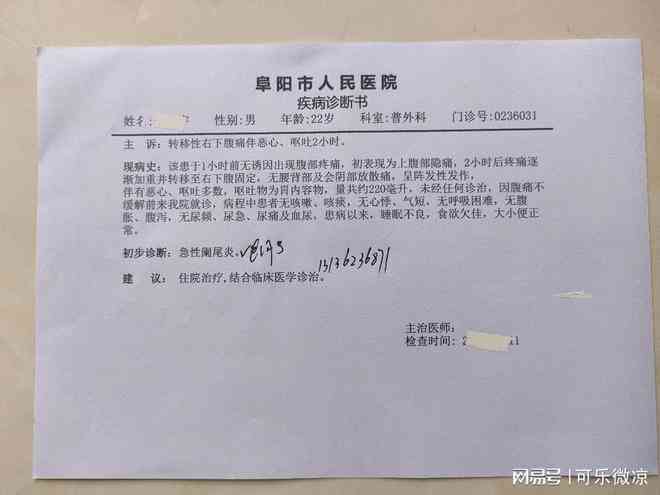 阜阳市人民医院
疾病诊断书
姓名: 性别:男 年龄:22岁 科室:普外科 门诊号:0236031
主 诉: 转移性右下腹痛伴恶心、呕吐2小时。
现病史: 该患于1小时前无诱因出现腹部疼痛，初表现为上腹部隐痛，2小时后疼痛逐
渐加重并转移至右下腹固定，无腰背部及会阴部放散痛，呈阵发性发作，
伴有恶心、呕吐多数，呕吐物为胃内容物，量共约220毫升，未经任何诊治，因腹痛不
缓解前来我院就诊，病程中患者无咳嗽、咳痰，无心悸、气短，无呼吸困难，无腹
胀、腹泻，无尿频、尿急、尿痛及血尿，患病以来，睡眠不良，食欲欠佳，大小便正
常。
初步诊断: 急性阑尾炎。
13136236871
建 议: 住院治疗,结合临床医学诊治。
主治医师:
检查时间: 2 11
网易号 | 可乐微凉